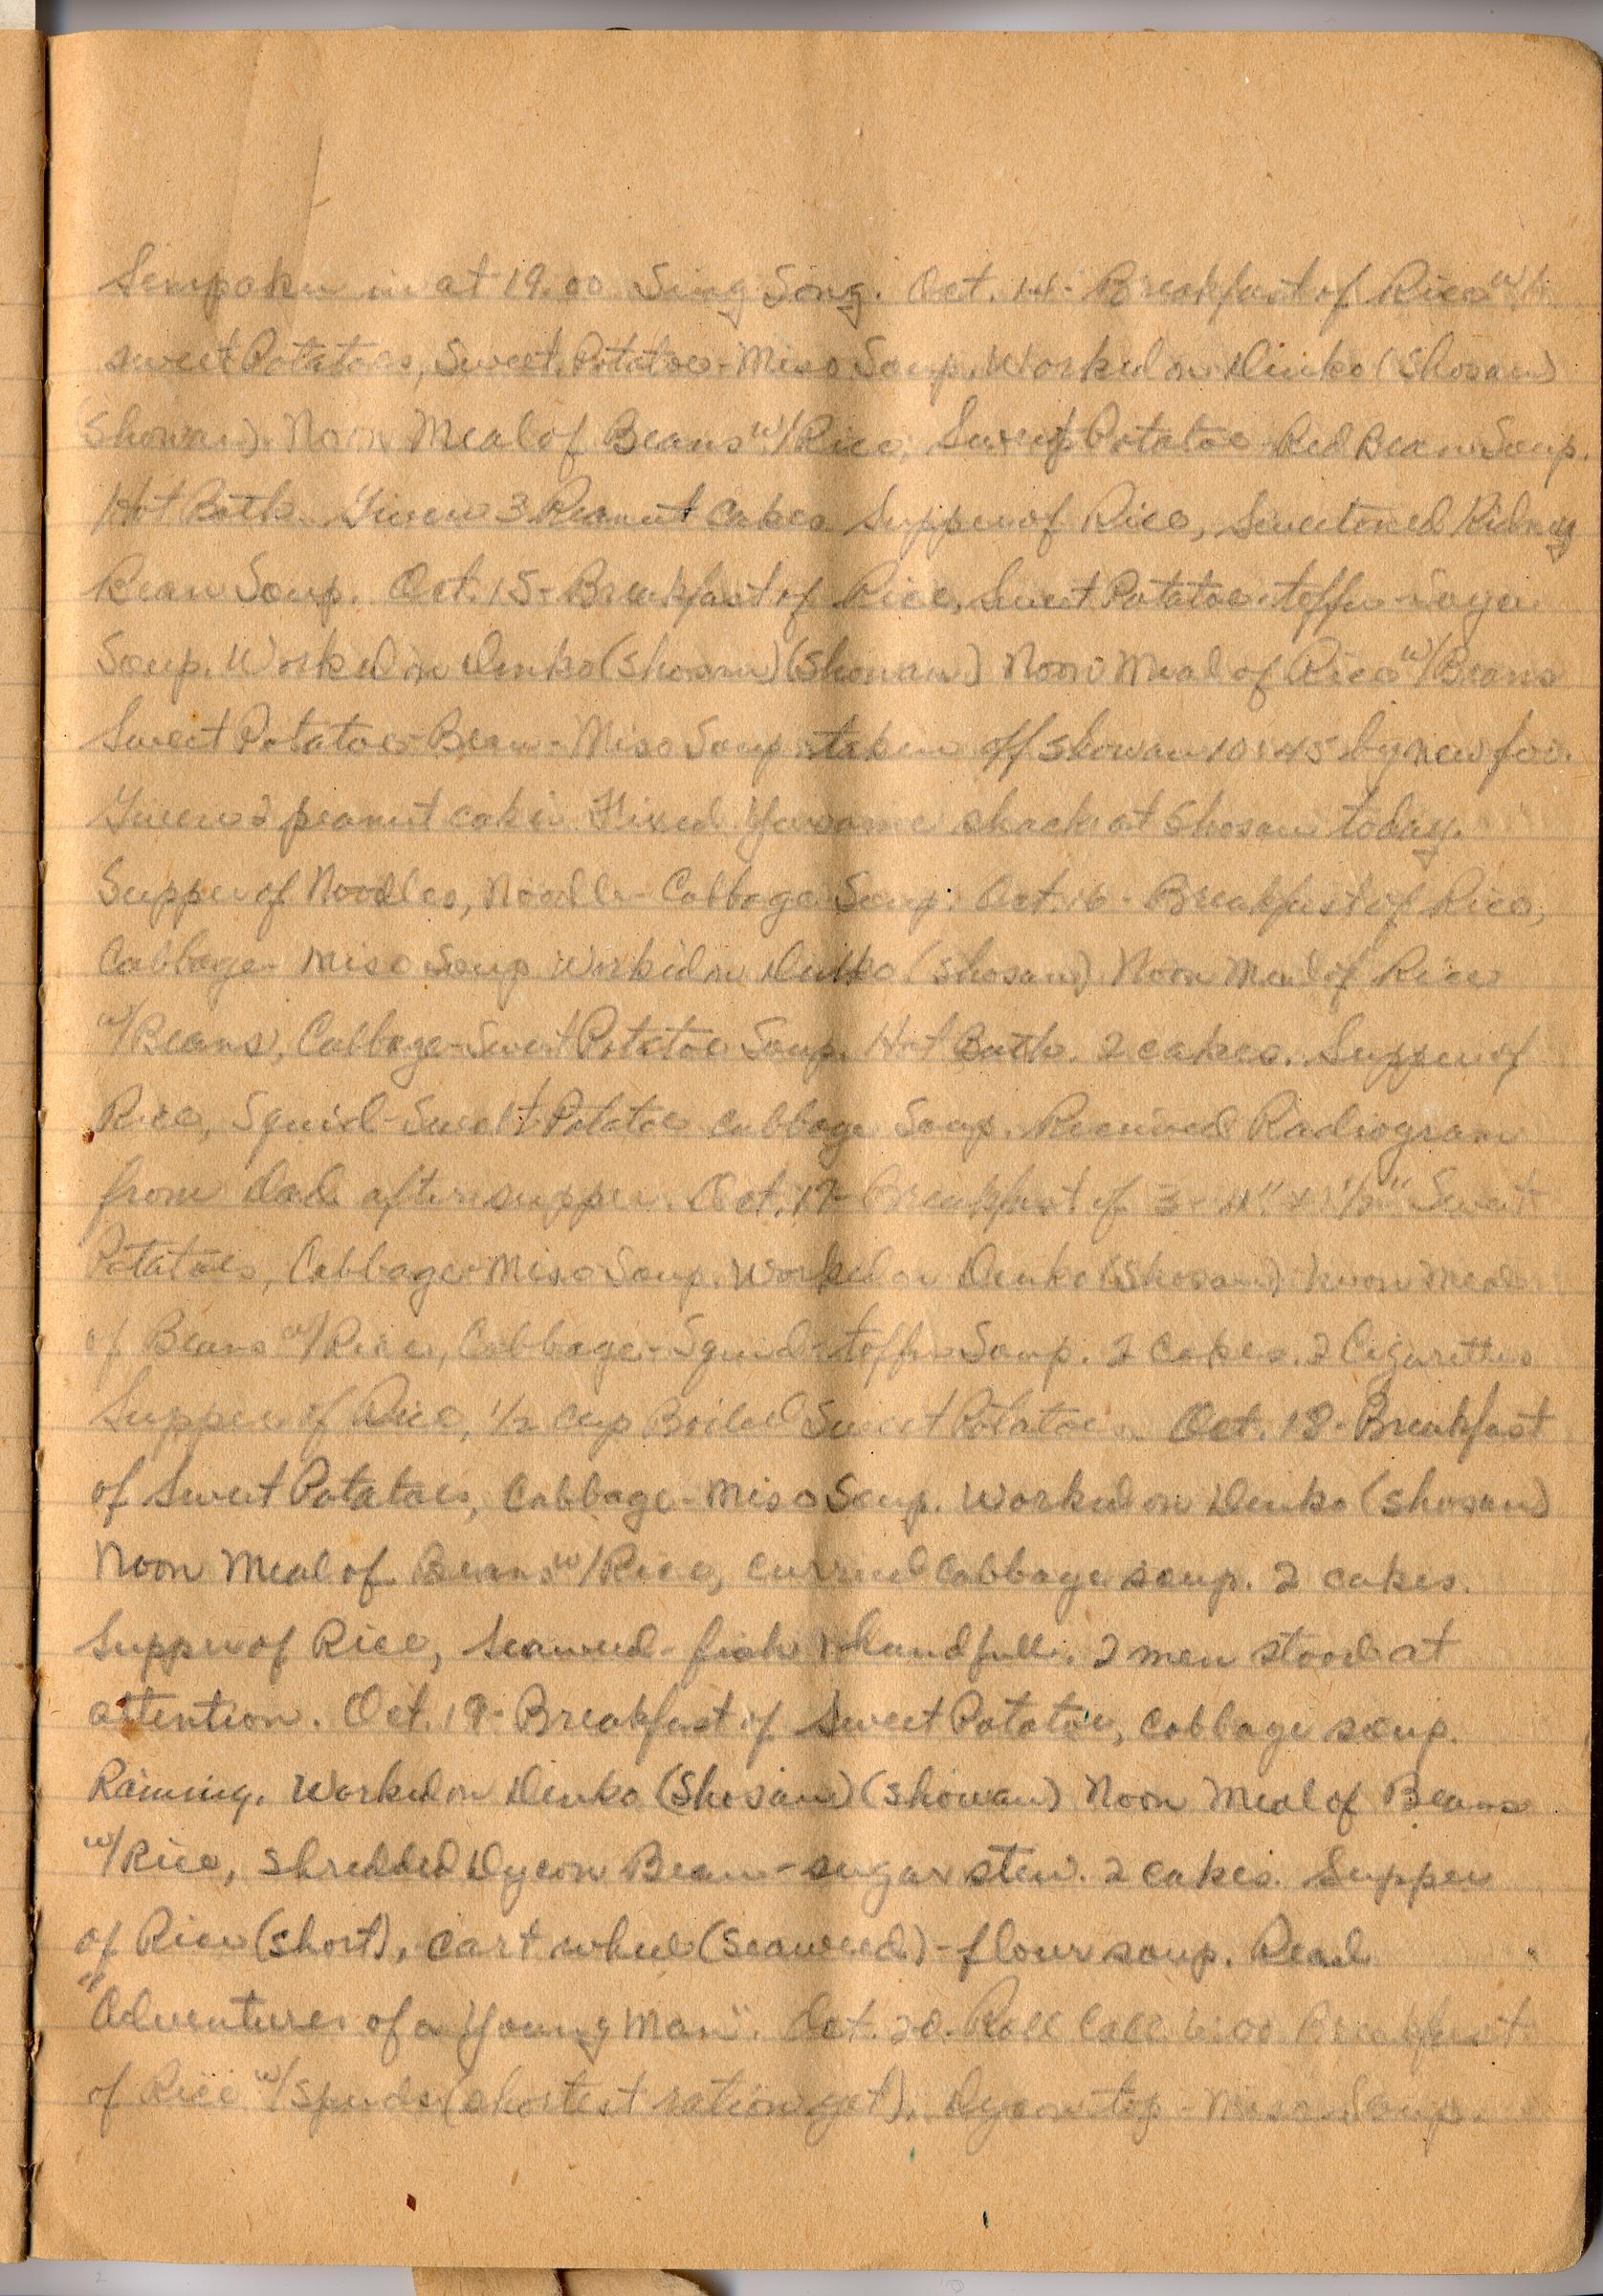 Senpaku in at 19.00 Sing Song. Oct. 14- Breakfast of Rice w/
sweet Potatoes, Sweet Potatoe-Miso Soup. Worked on Denko (Shosan)
Showan). Noon Meal of Beans w/Rice, Sweet Potatoe Red Bean Soup.
Hot Bath. Given 3 Peanut Cakes Supper of Rice, Sweetened Kidney
Bean Soup. Oct. 15- Breakfast of Rice, Sweet Potatoe-toffu-
Soup. Worked on Denko (Shosan) (Showan) Noon Meal of Rice w/Beans
Sweet Potatoe-Bean-Miso Soup taken off Showan 10:45 by new
Given 2 peanut cakes Fixed Yasame shack at Shosan today.
Supper of Noodles, Noodle-Cabbage Soup. Oct. 16- Breakfast of Rice,
Cabbage-Miso Soup Worked on Denko (Shosan) Noon Meal of Rice
w/Beans, Cabbage-Sweet Potatoe Soup. Hot Bath. 2 cakes. Supper of
Rice, Squid-Sweet Potatoe cabbage Soup. Received Radiogram
from Dad after supper. Oct. 17- Breakfast of 3- 4" x 1 1/2" Sweet
Potatoes, Cabbage-Miso Soup. Worked on Denko (Shosan) Noon Meal
of Beans w/Rice, Cabbage-Squid-toffu Soup. 2 Cakes. 2 Cigarettes
Supper of Rice, 1/2 cup Boiled Sweet Potatoe. Oct. 18- Breakfast
of Sweet Potatoes, Cabbage-Miso Soup. Worked on Denko (Shosan)
Noon Meal of Beans w/Rice, curried Cabbage soup. 2 cakes.
Supper of Rice, Seaweed-fish 1 handfull. 2 men stood at
attention. Oct. 19- Breakfast of Sweet Potatoe, Cabbage soup.
Raining. Worked on Denko (Shosan) (Showan) Noon Meal of Beans
w/Rice, Shredded Dycon Bean-sugar stew. 2 cakes. Supper
of Rice (short), cart wheel (seaweed)-flour soup. Read
"Adventures of a Young Man". Oct. 20- Roll Call 6:00 Breakfast
of Rice w/spuds (shortest ration yet). Dycon top-Miso Soup.